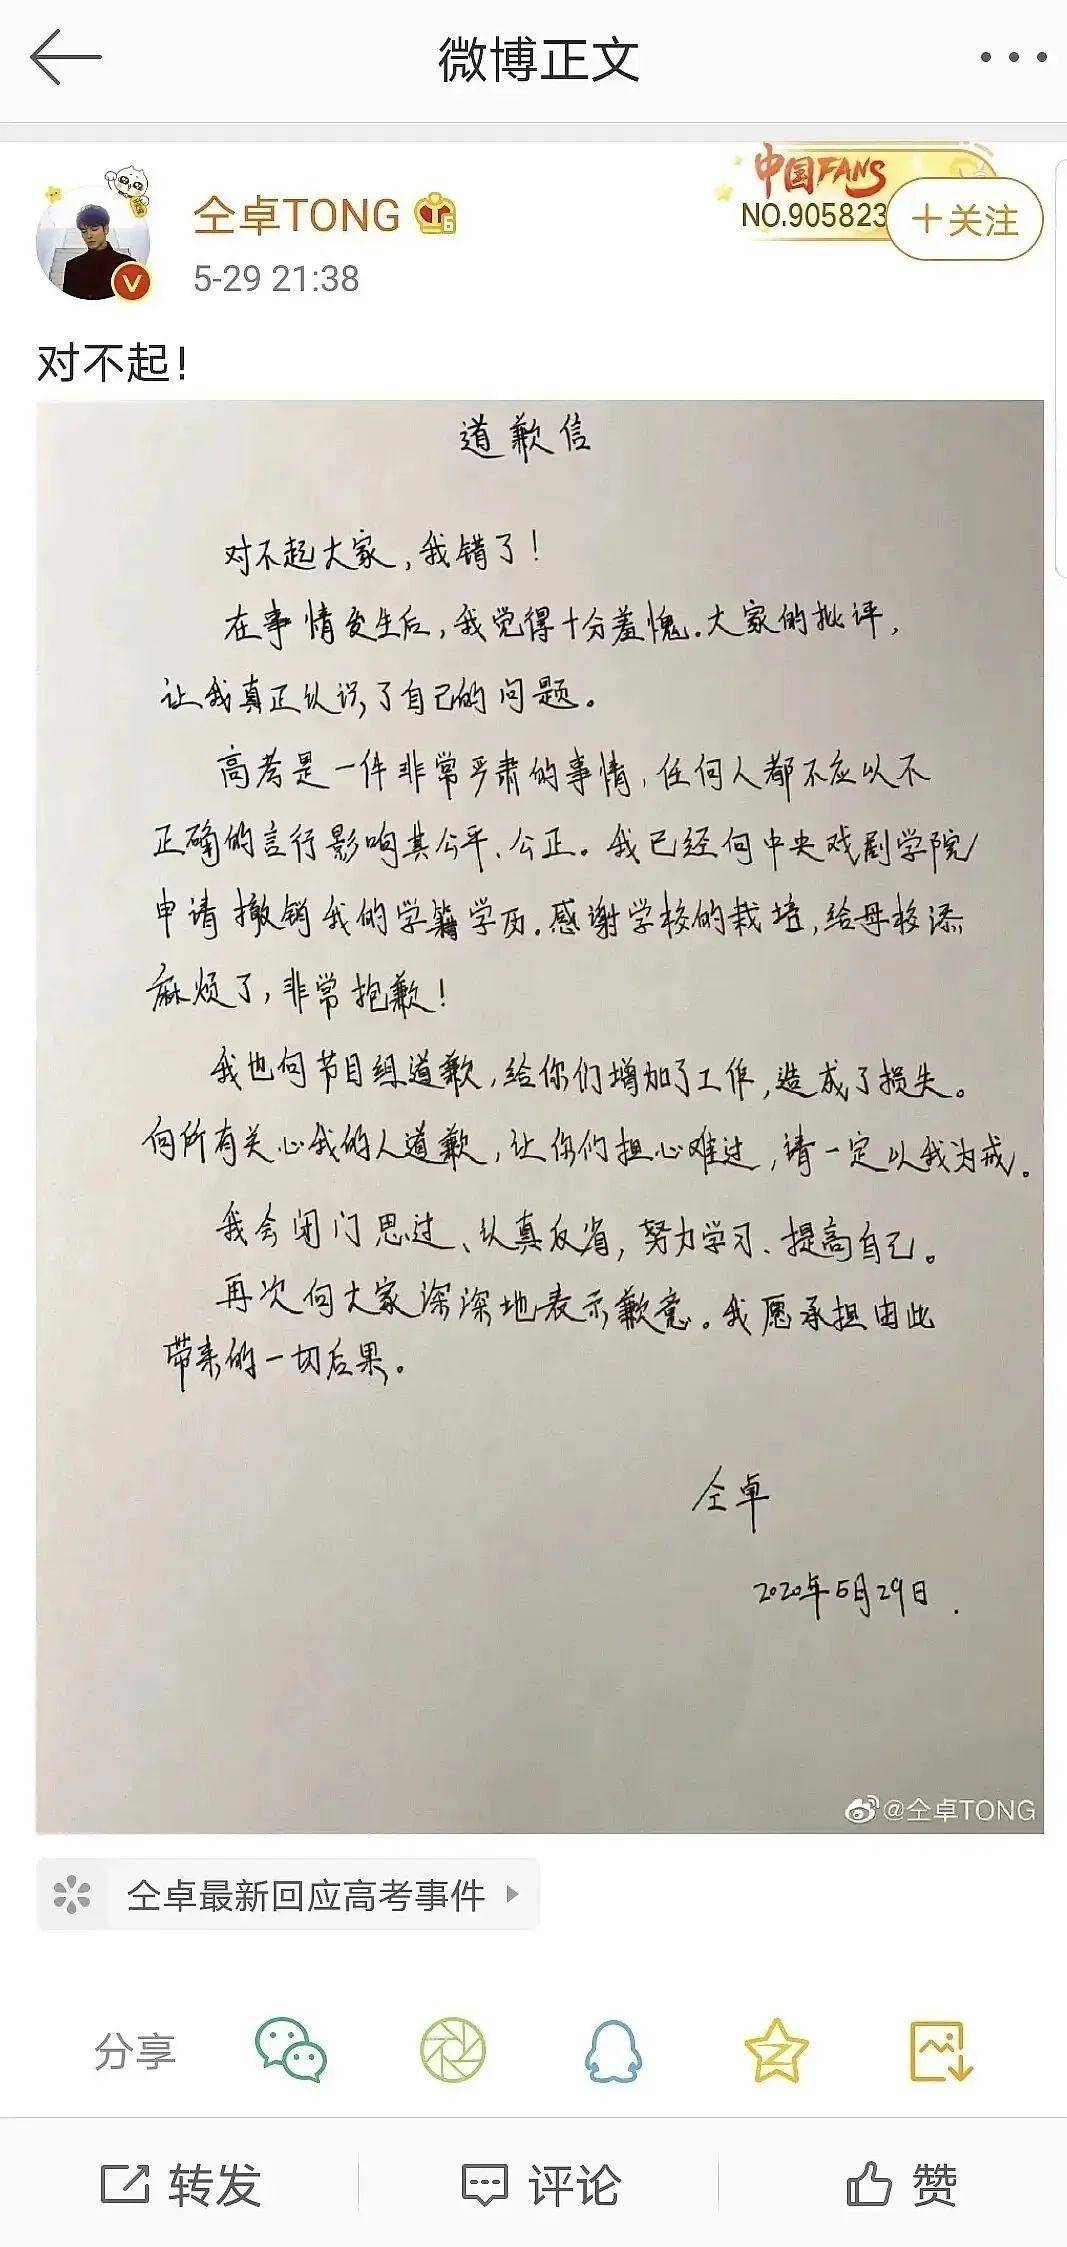 微博正文
中国FANS
仝卓TONG 6
NO.905823
+关注
5-29 21:38
对不起!
道歉信
对不起大家,我错了!
在事情发生后,我觉得十分羞愧。大家的批评,
让我真正认识了自己的问题。
高考是一件非常严肃的事情,任何人都不应以不
正确的言行影响其公平、公正。我已经向中央戏剧学院
申请撤销我的学籍学历。感谢学校的栽培,给母校添
麻烦了,非常抱歉!
我也向节目组道歉,给你们增加了工作,造成了损失。
向所有关心我的人道歉,让你们担心难过,请一定以我为戒。
我会闭门思过、认真反省,努力学习、提高自己。
再次向大家深深地表示歉意。我愿承担由此
带来的一切后果。
仝卓
2020年5月29日.
@仝卓TONG
仝卓最新回应高考事件
分享
转发
评论
赞